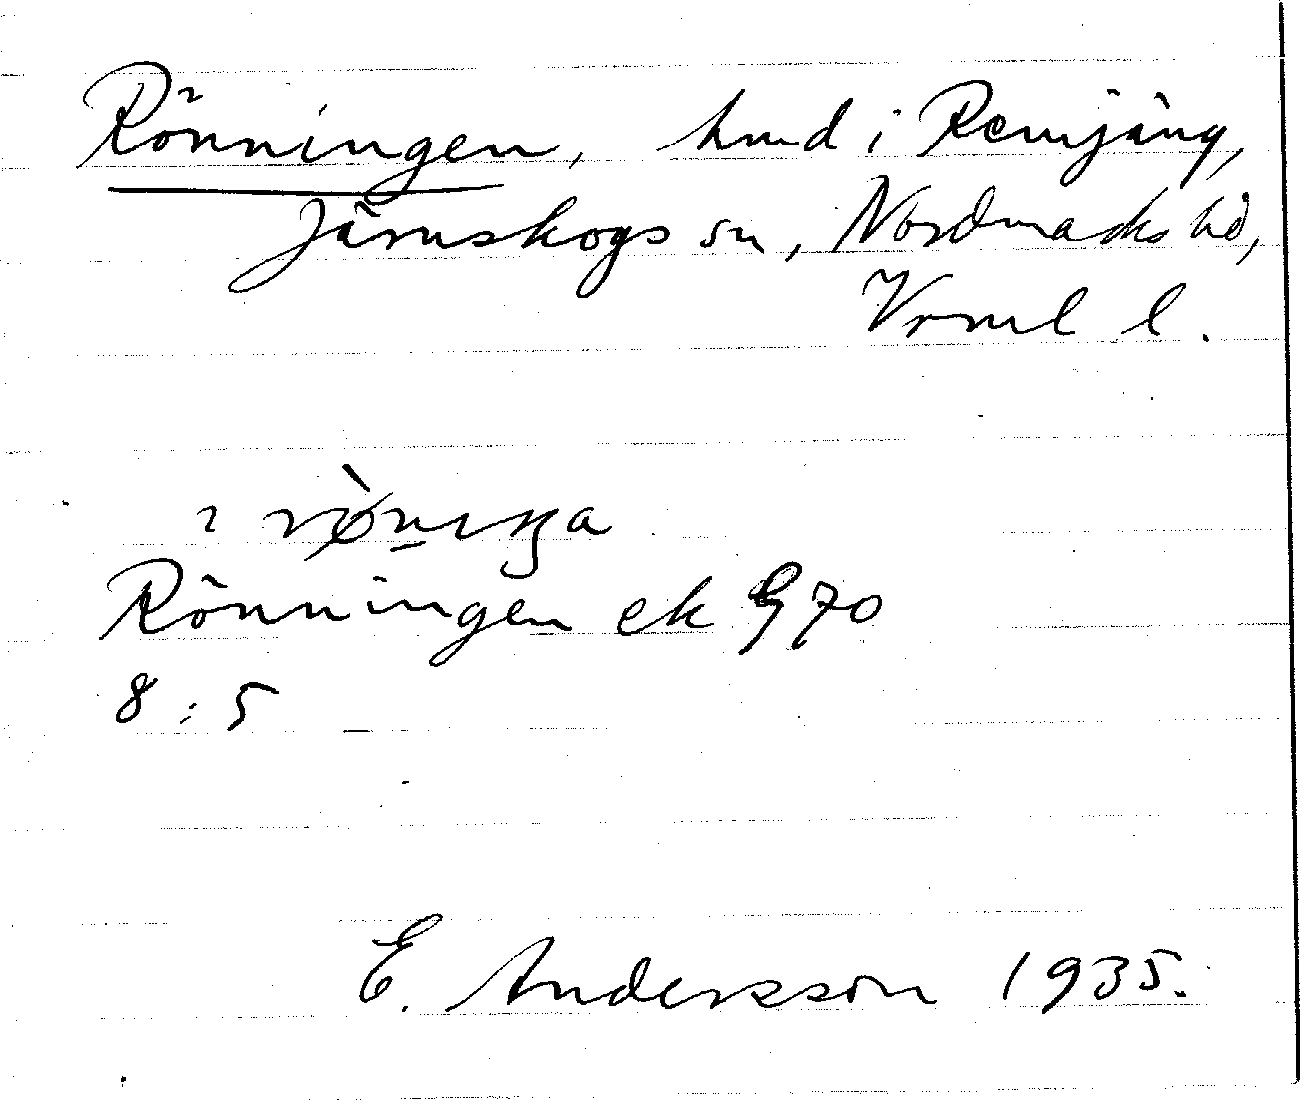 Rönningen, hmd i Remjäng,
Järnskogs sn, Nordmarks hd,
Vrml l.
ı rø̀nıŋa
Rönningen ek G 70
8:5
E. Andersson 1935.